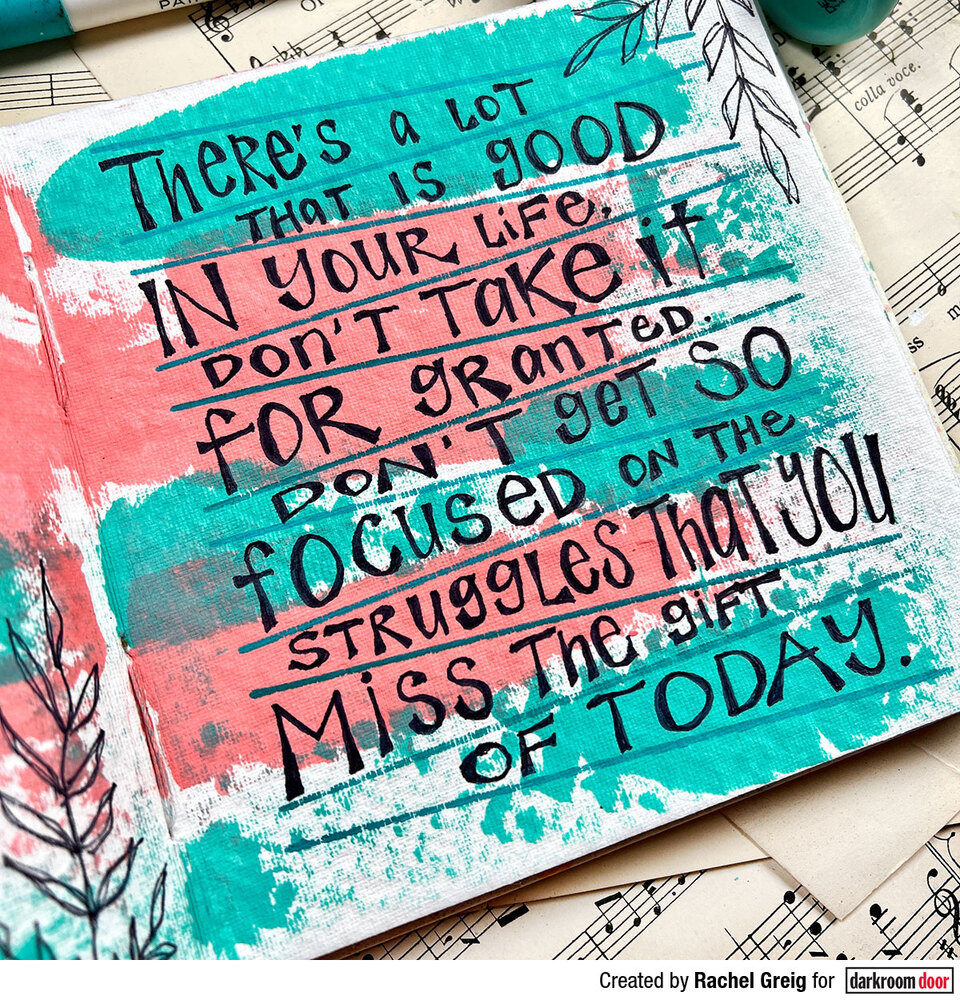 THeRe's a LOT
THaT IS gOOD
IN YOUR LiFe.
DON'T TaKe iT
fOR gRanTeD.
DON'T geT SO
fOCuseD ON THe
STRuggLES THaT YOU
MiSS THe gifT
OF TODAY.
colla voce.
Created by Rachel Greig for darkroom door